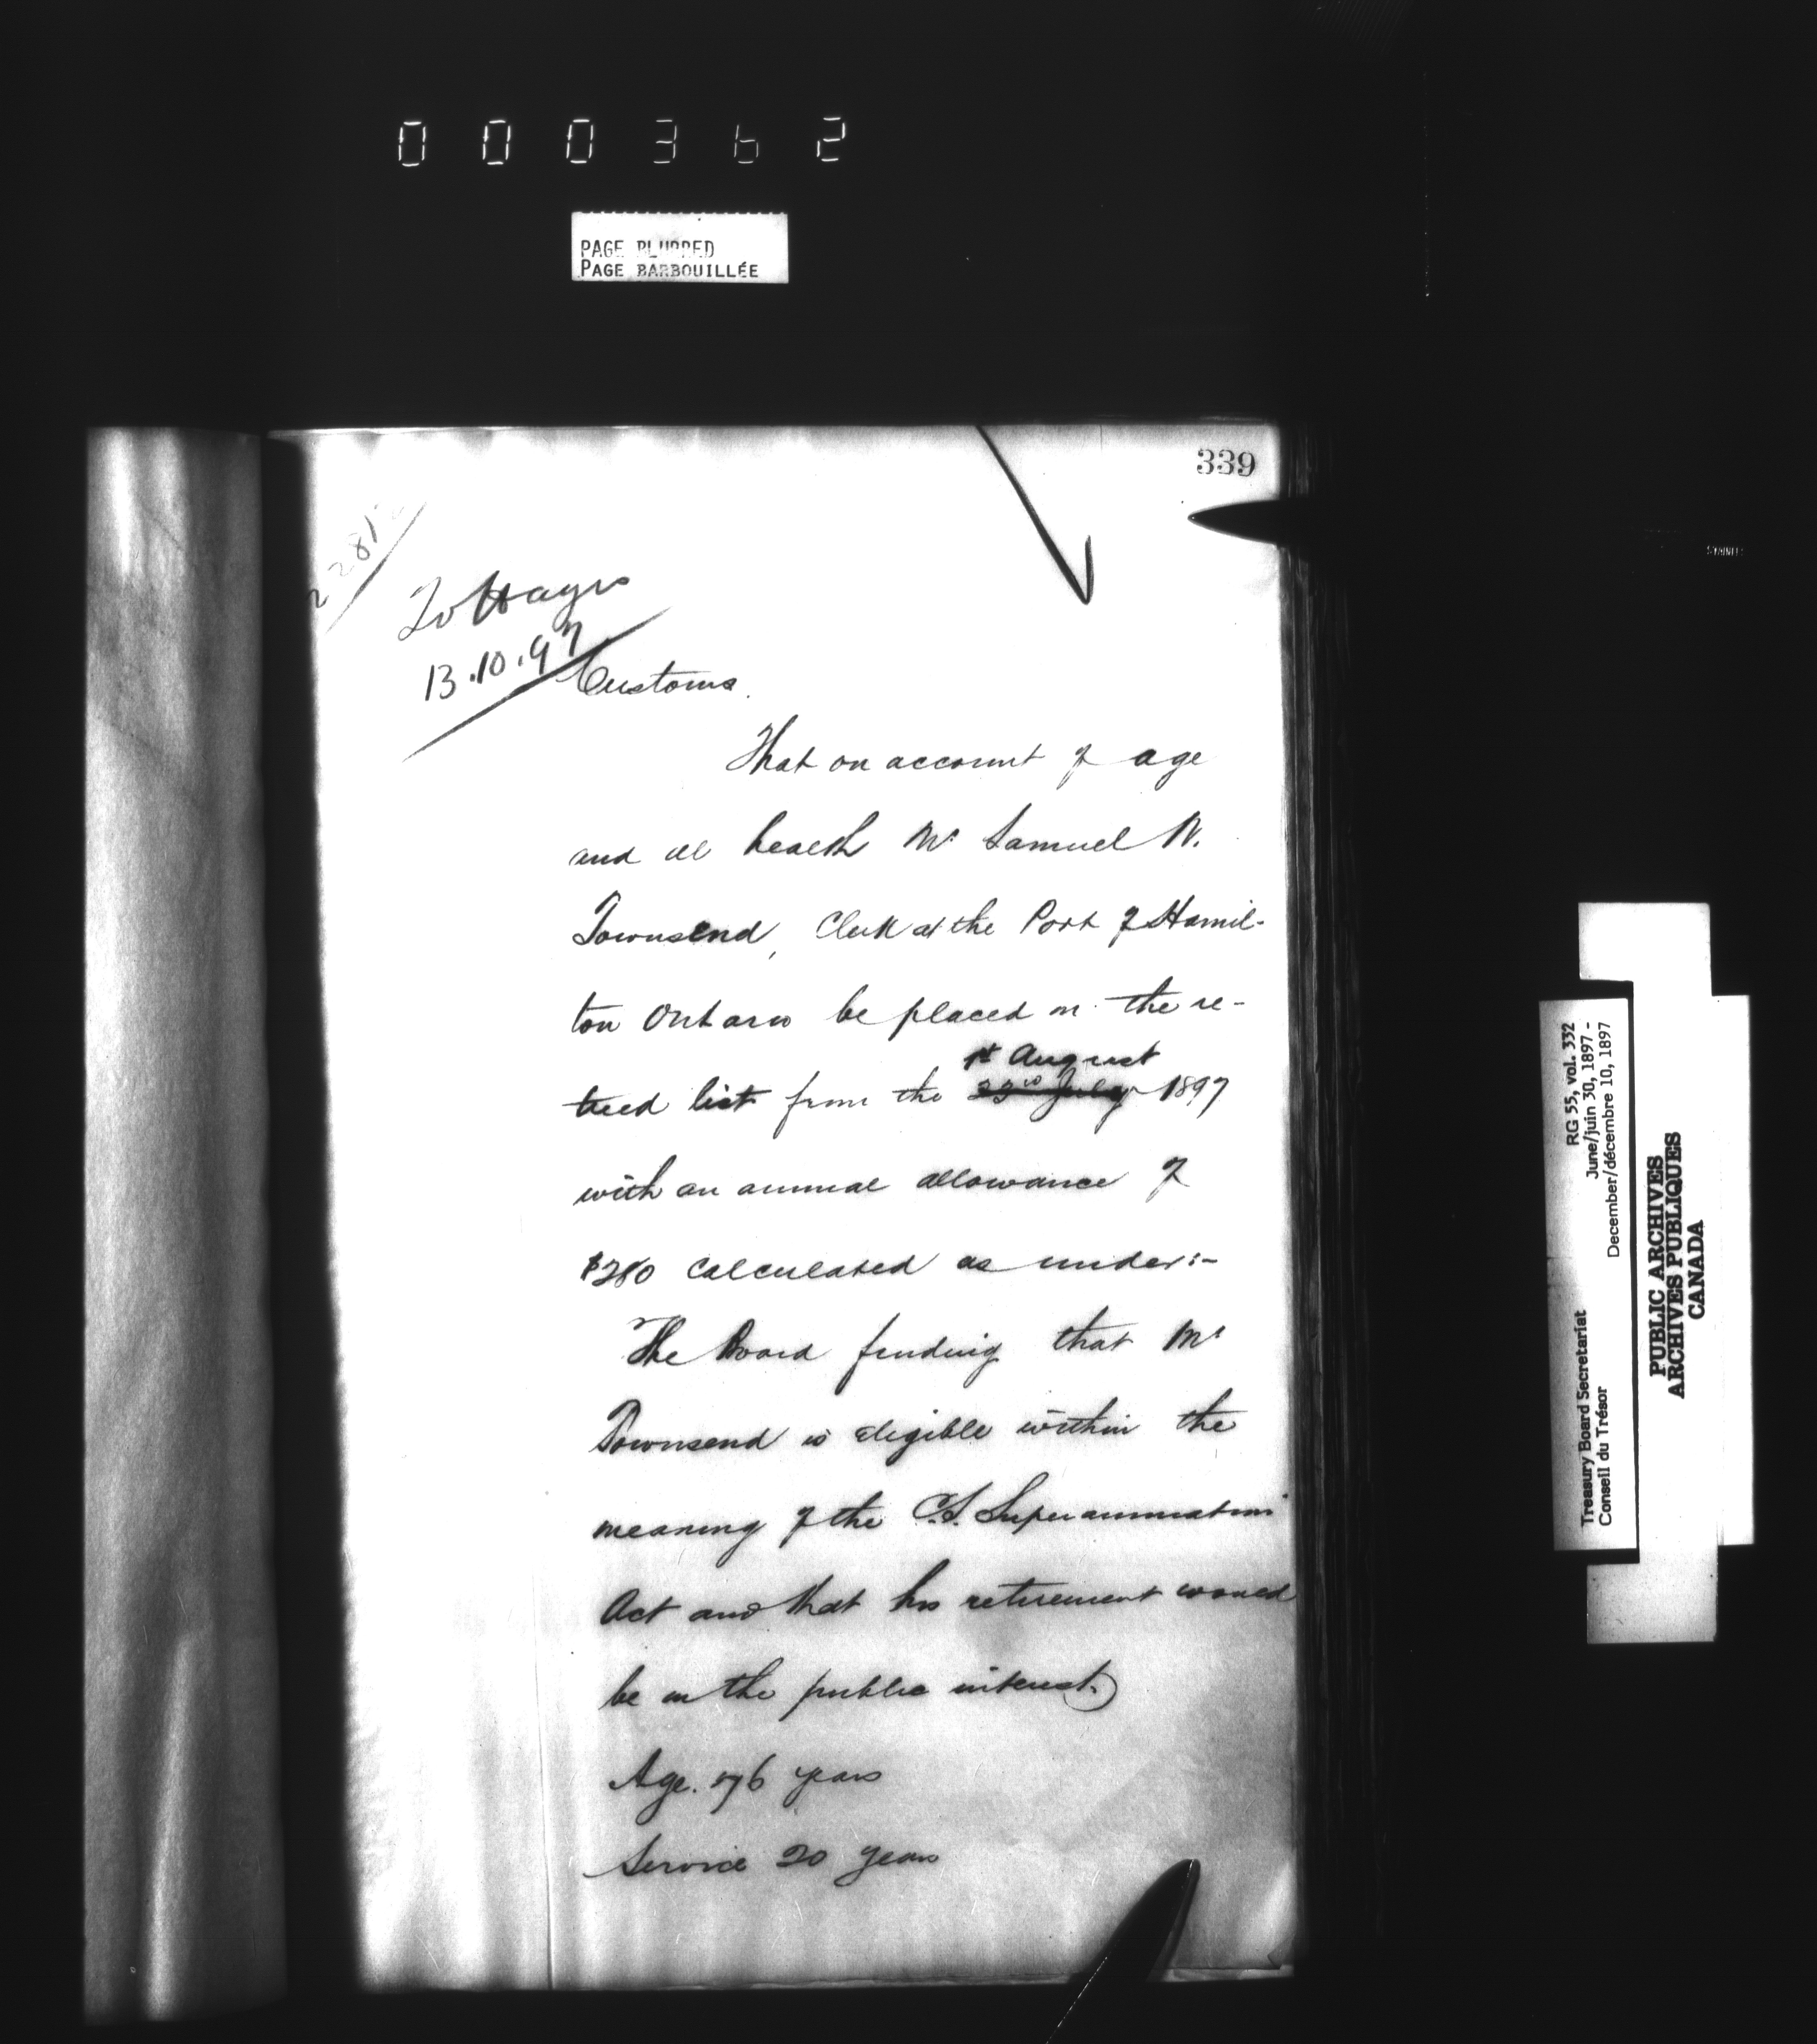 000362
PAGE BLURRED
PAGE BARBOUILLÉE
339
2281
To Hayes
13.10.97
Customs.
That on account of age
and ill health Mr Samuel W.
Townsend, Clerk at the Port of Hamil-
ton Ontario be placed on the re-
tired list from the 1st August
23rd July 1897
with an annual allowance of
$280 calculated as under:-
The Board finding that Mr
Townsend is eligible within the
meaning of the C.S. Superannuation
Act and that his retirement would
be in the public interest.)
Age. 76 years
Service 20 years
Treasury Board Secretariat RG 55, vol. 332
Conseil du Trésor June/juin 30, 1897 -
December/décembre 10, 1897
PUBLIC ARCHIVES
ARCHIVES PUBLIQUES
CANADA